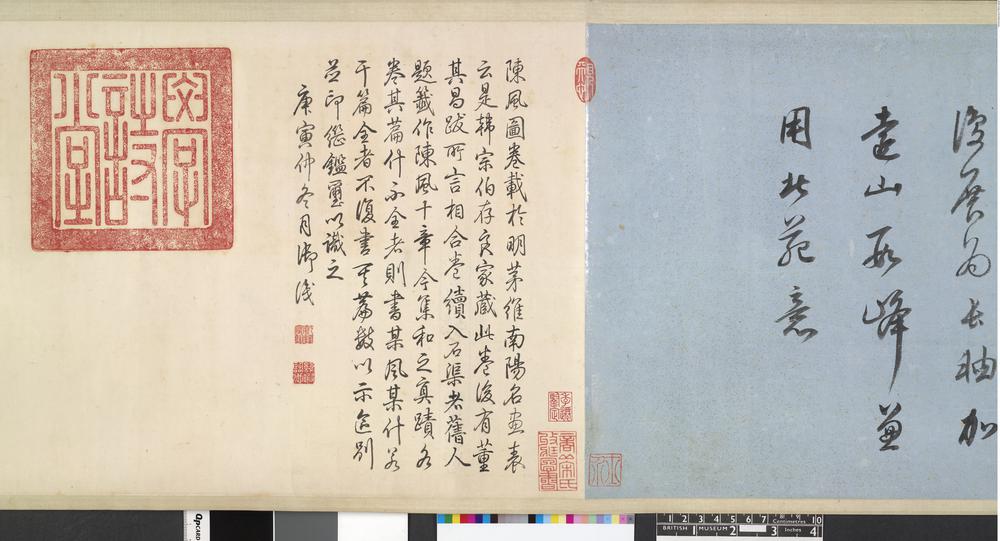 復展為長軸加
遠山數峰兼
用北苑意
陳風圖卷載於明茅維南陽名畫表
云是韓宗伯存良家藏此卷後有董
其昌跋所言相合卷續入石渠者舊人
題籤作陳風十章今集和之真蹟各
卷其篇什不全者則書某風某什若
干篇全者不復書其篇數以示區別
並印鑑璽以識之
庚寅仲冬月御識
QPCARD
1 2 3 4 5 6 7 8 9 10
Centimetres
BRITISH MUSEUM
1 2 3 4
Inches